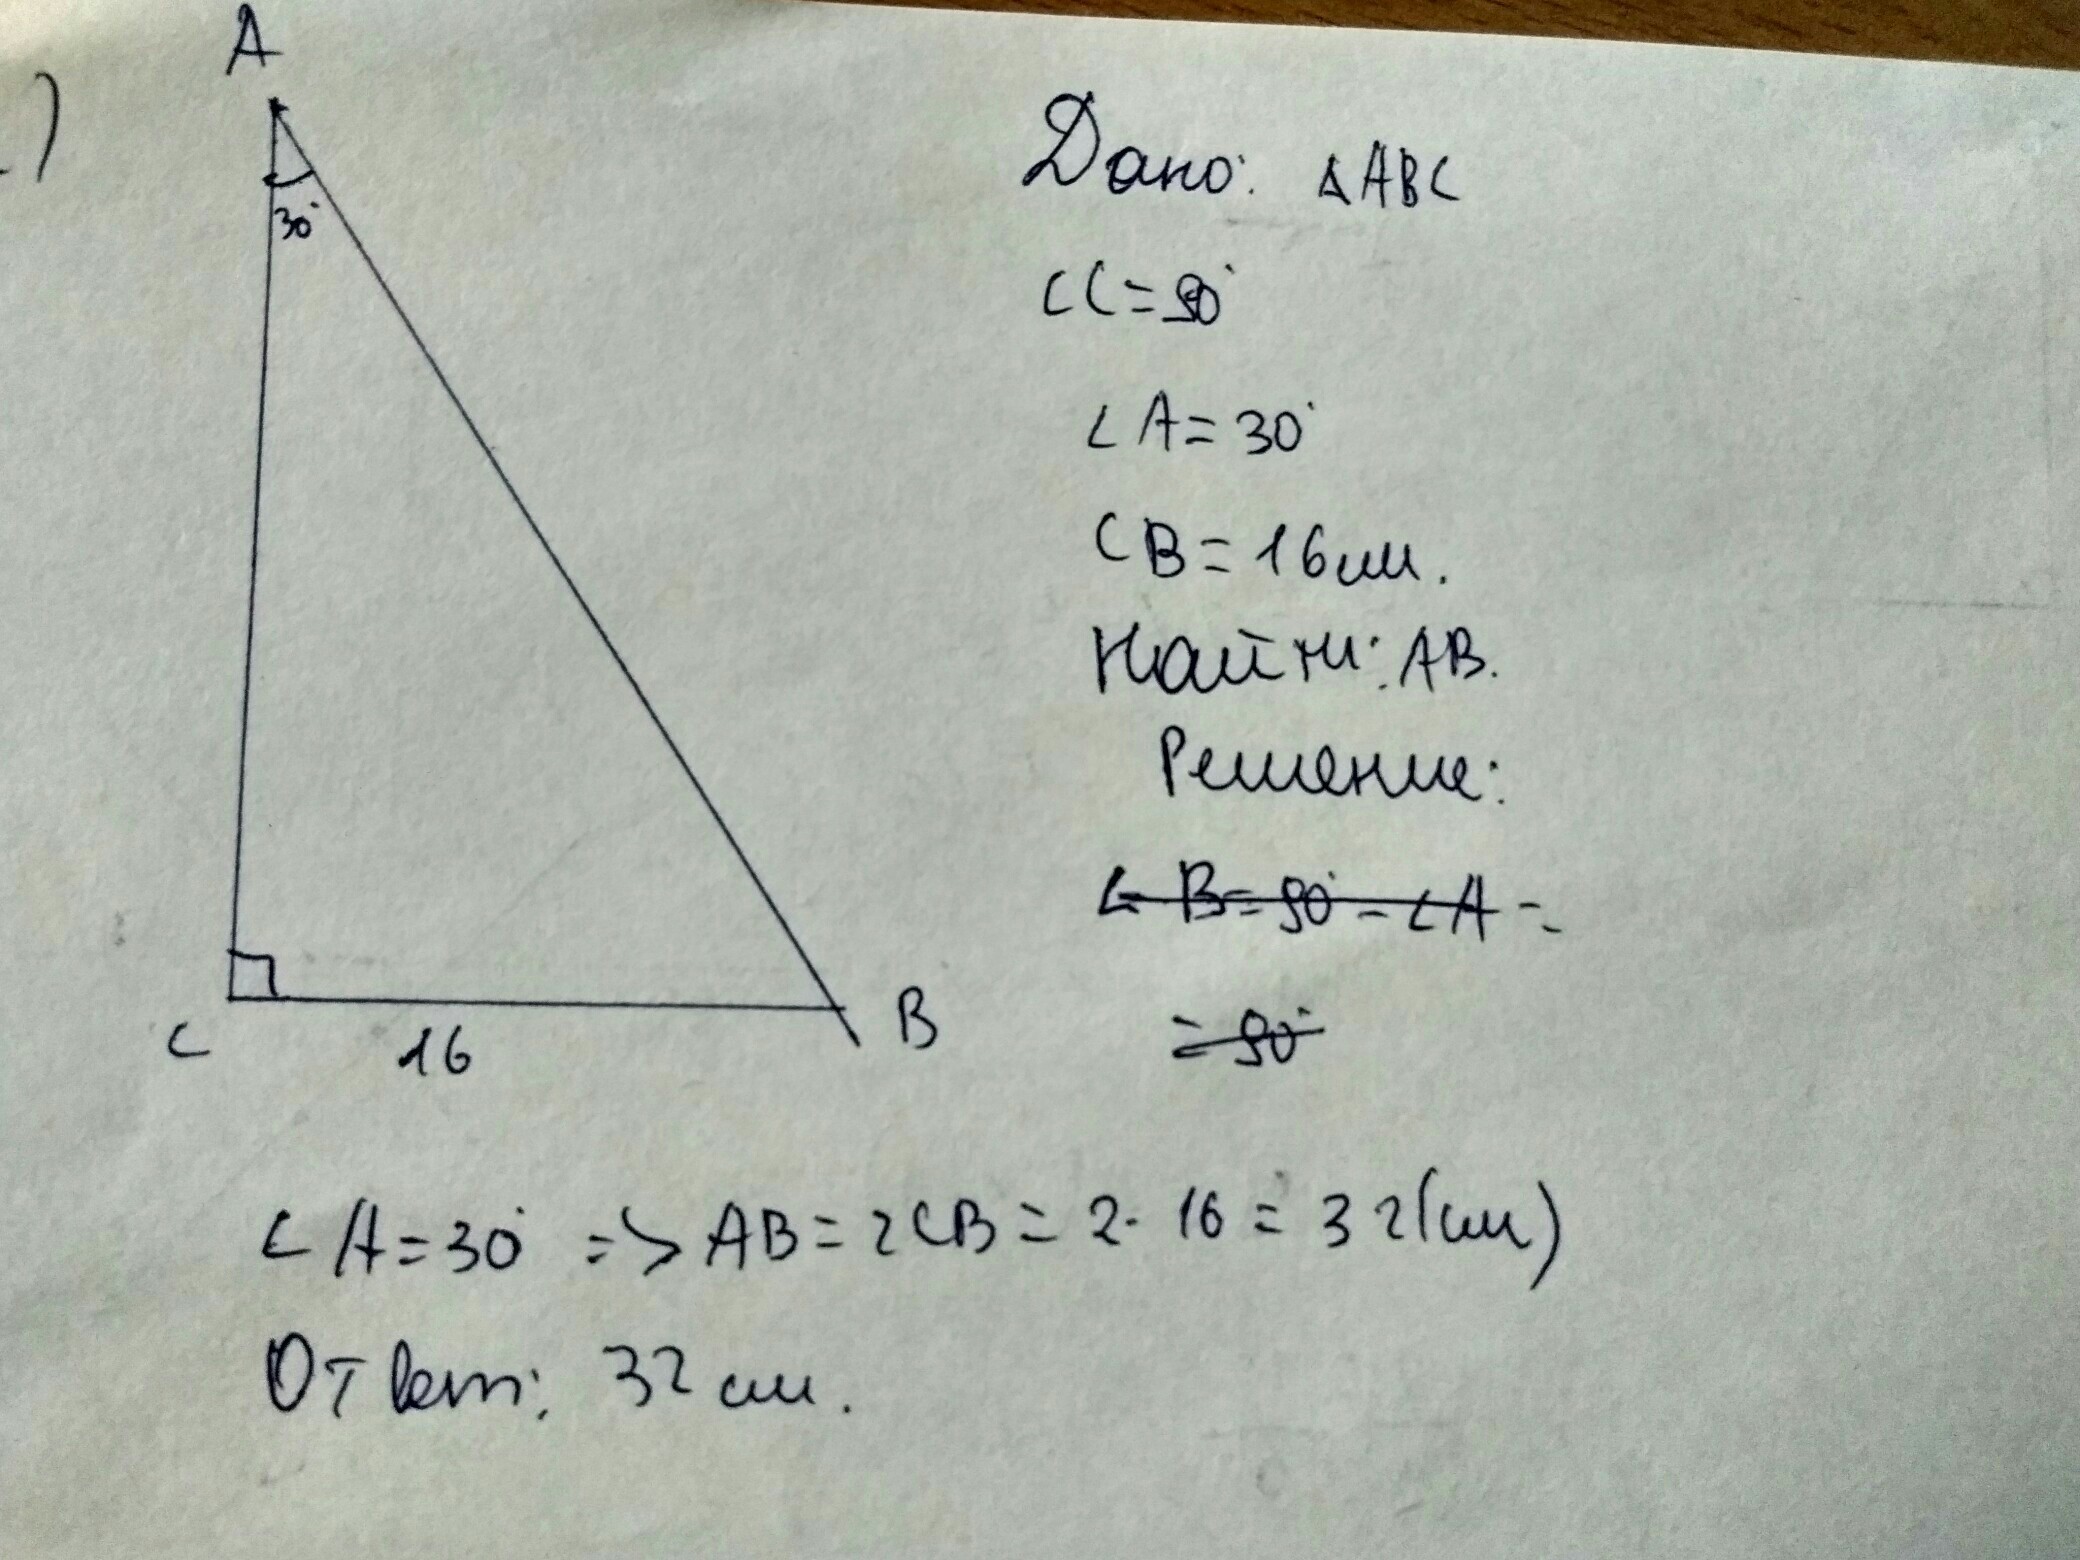 A
)
30°
C
16
B
Дано: △ABC
∠C=90°
∠A=30°
CB=16см.
Найти: AB.
Решение:
∠B=90°-∠A=
=90°
∠A=30° => AB=2CB=2·16=32(см)
Ответ: 32 см.